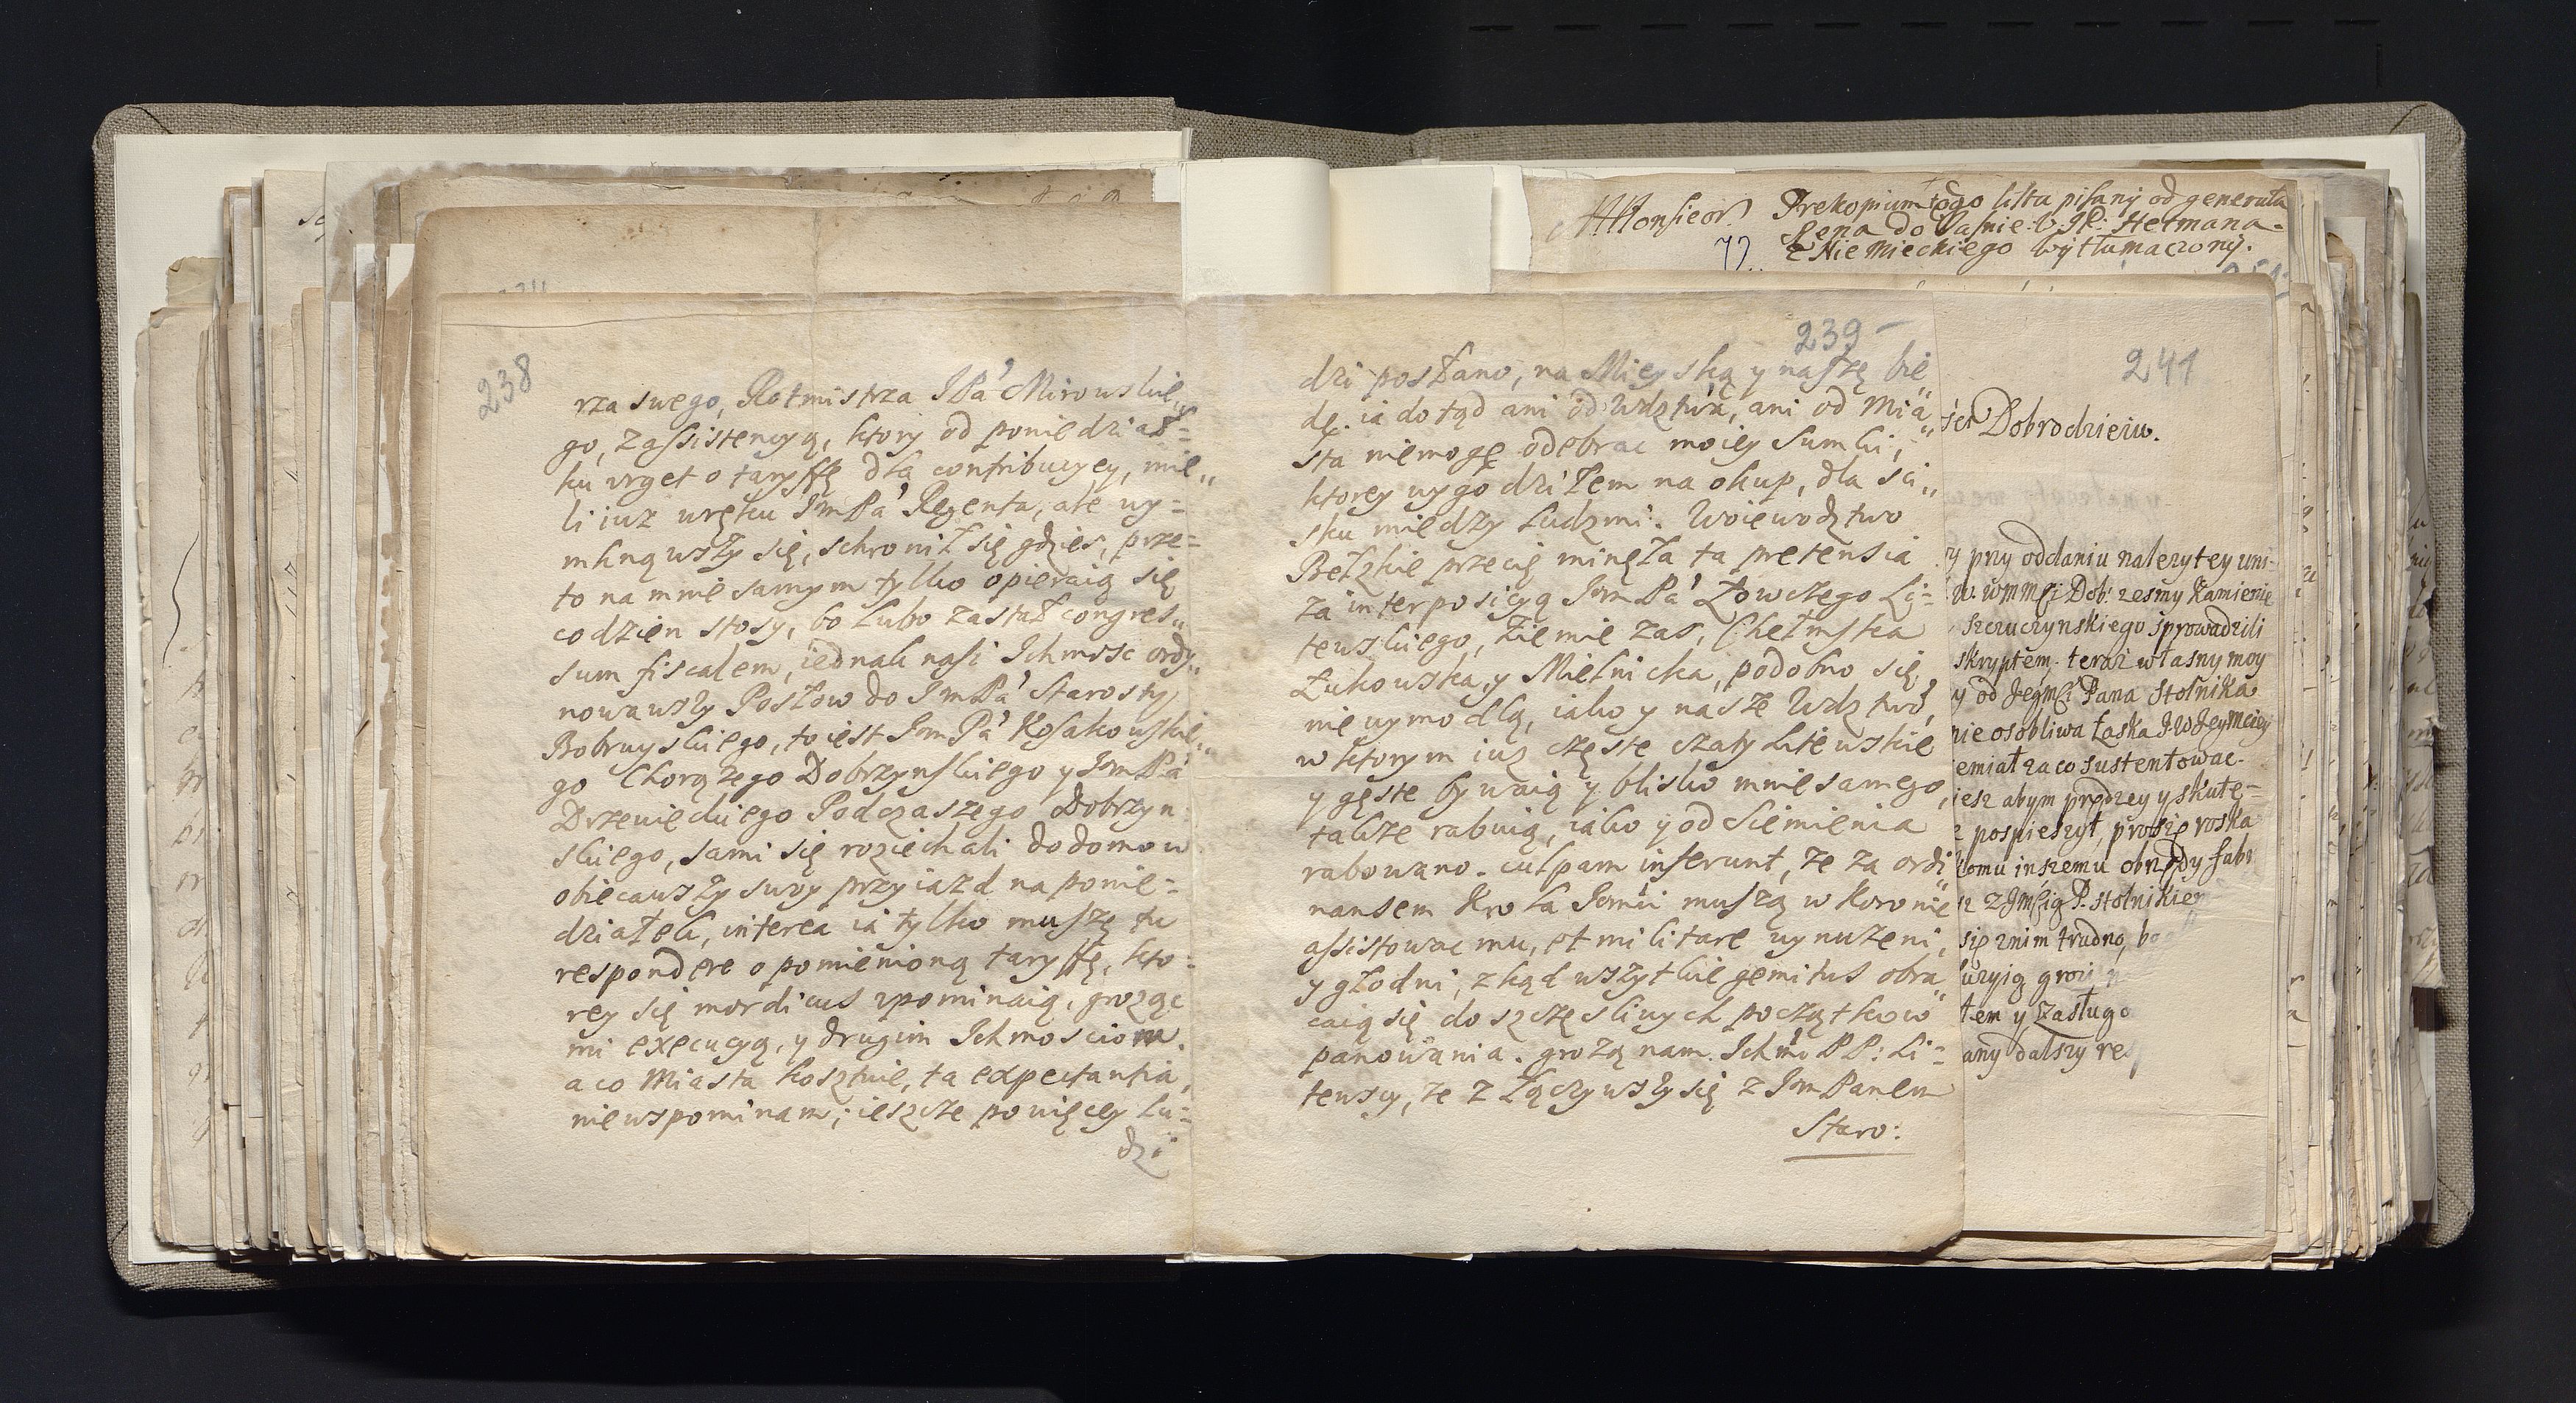 Monsieor
Prekopium tego listu pisany od generała
Rena do Jasnie W JP: Hetmana
z Niemieckiego wytłumaczony.
77.
238
rza swego, Rotmistrza JPa' Mirowskie„
go, z assistencyą, ktory od poniedział=
ku urget o taryffę dla contribucyey, mie„
li iuz wręku JmPa' Regenta, ale wy=
mknąwszy się, schronił się gdzies, prze=
to na mnie samym tylko opieraią się
codzien stosy, bo lubo zastał congres„
sum fiscalem, iednak nasi Ichmosc ordy„
nowawszy Posłow do JmPa' Starosty
Bobruyskiego, to iest JmPa' Kossakowskie„
go Chorązego Dobrzynskiego y JmPa
Drzewieckiego Podczaszego Dobrzyn
skiego, sami się roziechali do domow
obiecawszy swoy przyiazd na ponie=
działek, interea ia tylko muszę tu
respondere o pomienioną taryffę, kto=
rey się mordicus upominaią, grożąc
mi execucyą, y drugim Ichmosciom.
a co Miasta kosztuie, ta expectantia,
nie wspominam; ieszcze powięcey lu=
dzi
239
dzi posłano, na Mieyską y naszę bie„
dę. ia dotąd ani od Wdztwa, ani od Mia„
sta niemogę odebrac moiey Sumki,
ktorey wygodziłem na okup, dla sci„
sku między Ludzmi. Woiewodztwo
Bełzkie przecię minęła ta pretensia
za interposicyą JmPa' Łowczego Li=
tewskiego, Ziemie zas, Chełmska
Łukowska, y Mielnicka, podobno się
nie wymodlą, iako y nasze Wdztwo,
w ktorym iuz częste czaty Litewskie
y gęste bywaią y blisko mnie samego,
takze rabuią, iako y od Siemienia
rabowano. culpam inferunt, ze za ordi„
nansem Krola Jemci muszą w Koronie
assistowac mu, et militare wynużeni,
y głodni, zkąd wszytkie gemitus obra„
caią się do szczęsliwych początkow
panowania. grożą nam Ichmc PP: Li=
tewscy, ze z Łączywszy się z JmPanem
Staro:
241
Dobrodzieiu.
y przy oddaniu nalezytey uni=
W. WMMci Dob: zesmy Kamienie
Szczuczynskiego sprowadzili
skryptem. teraz własny moy
y od Jegmci Pana Stolnika
nie osobliwa Łaska J.W Jeymciey
emiał za co sustentowac.
iesz abym prędzey y skute=
pospieszył, proszę roska
komu inszemu obrzędy fabr
z JMcią P. Stolnikiem
się z nim trudno, bo
tem y Zasługo
any dalszy re